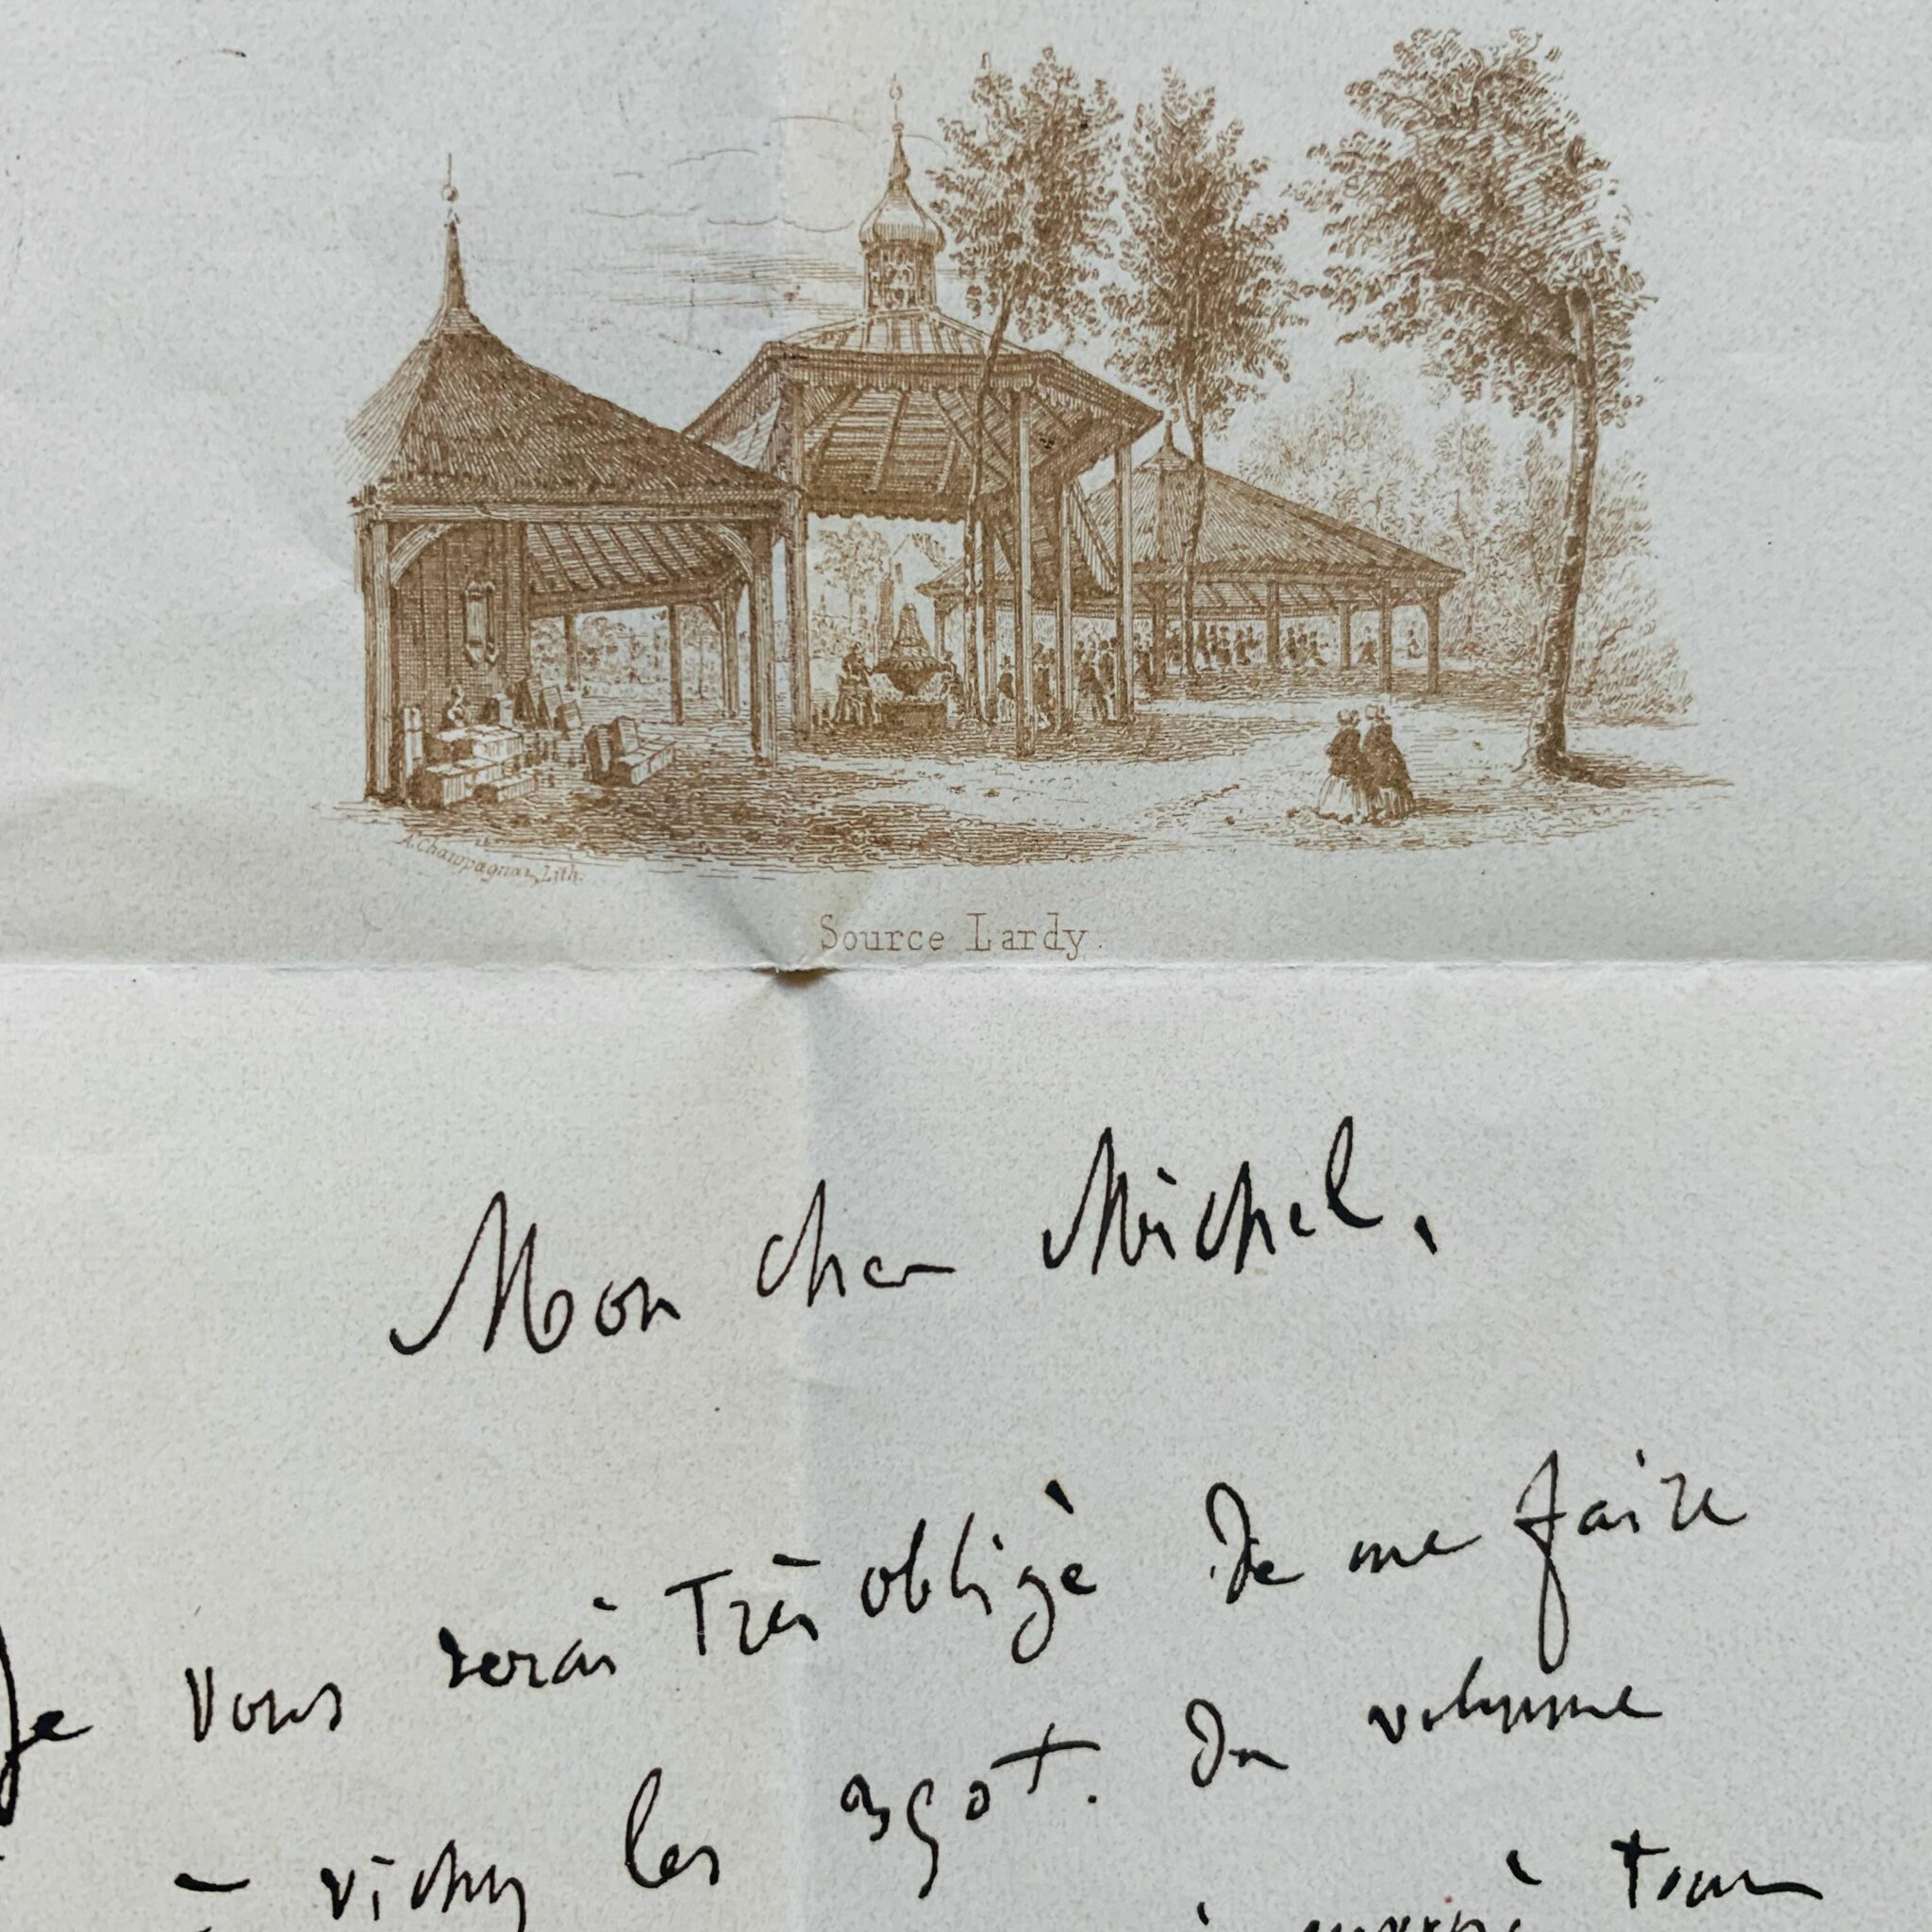 A. Champagnat, Lith.
Source Lardy.
Mon cher Michel,
Je vous serai très obligé de me faire
à vichy les du volume
à tour